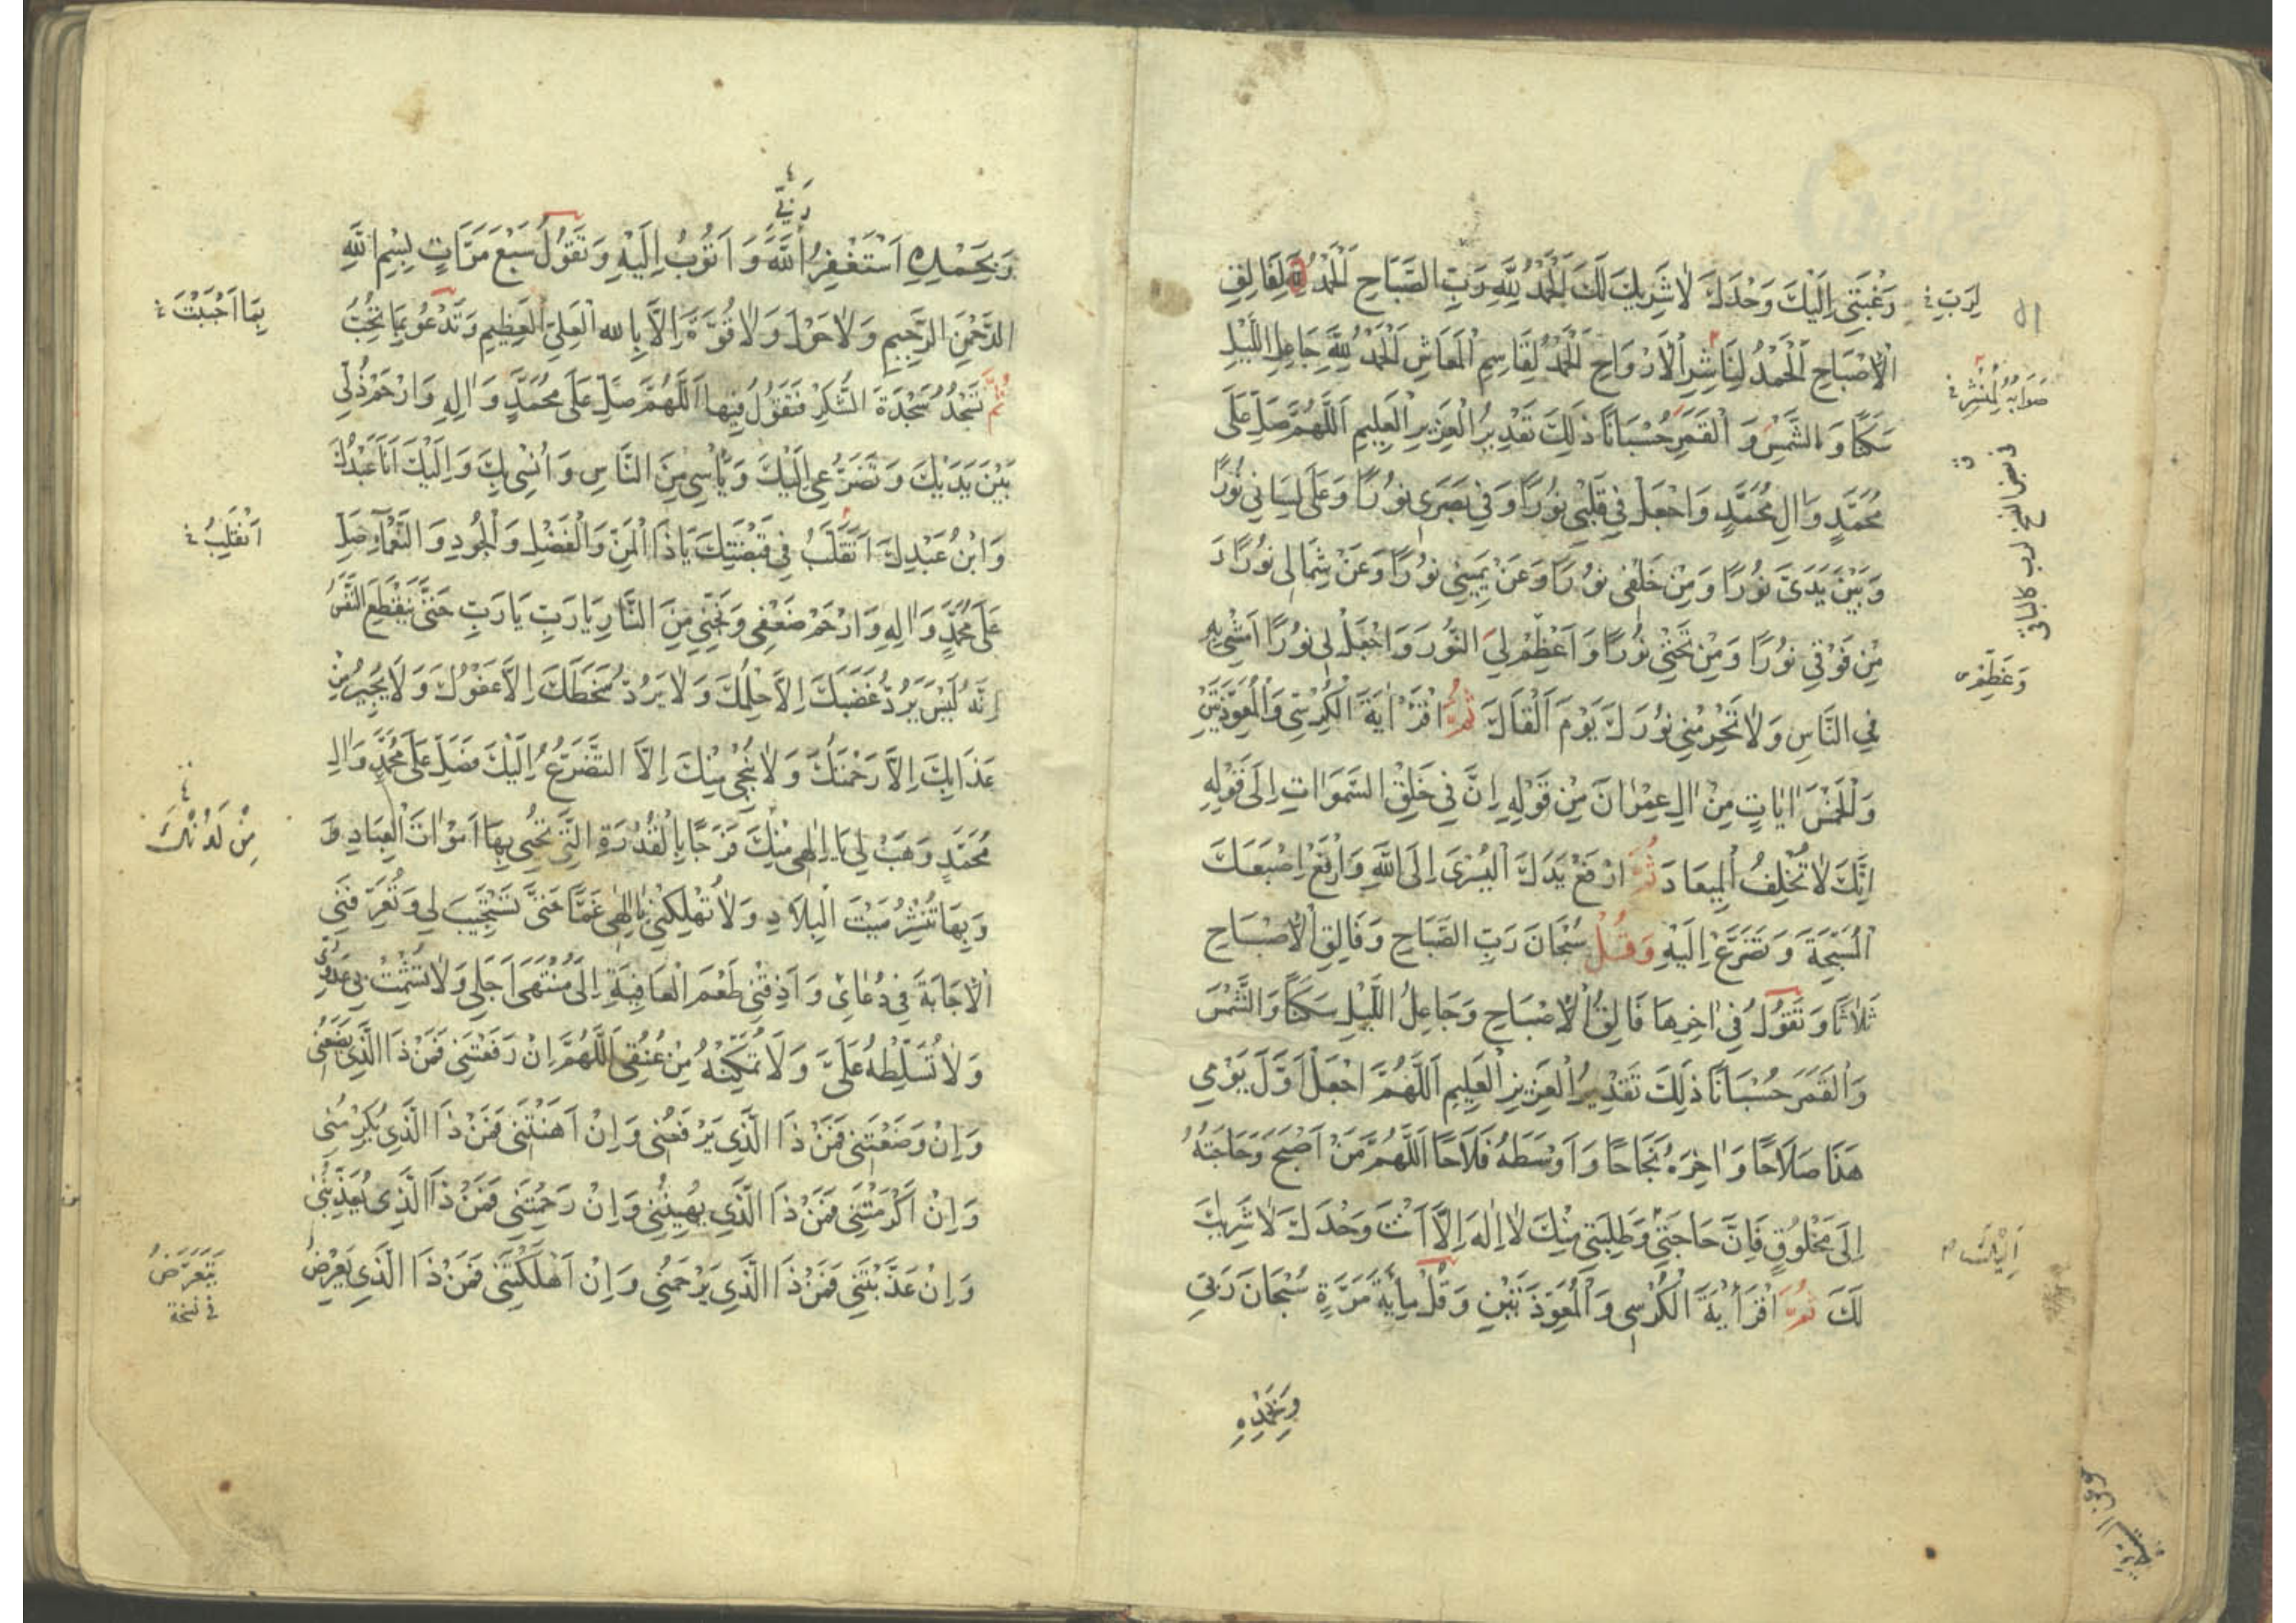 رَغْبَتِي اِلَيْكَ وَحْدَكَ لَا شَرِيكَ لَكَ اَلْحَمْدُ لِلّٰهِ رَبِّ الصَّبَاحِ اَلْحَمْدُ لِفَالِقِ
الْاِصْبَاحِ اَلْحَمْدُ لِنَاشِرِ الْاَرْوَاحِ اَلْحَمْدُ لِقَاسِمِ الْمَعَاشِ اَلْحَمْدُ لِلّٰهِ جَاعِلِ اللَّيْلِ
سَكَنًا وَالشَّمْسِ وَالْقَمَرِ حُسْبَانًا ذٰلِكَ تَقْدِيرُ الْعَزِيزِ الْعَلِيمِ اَللّٰهُمَّ صَلِّ عَلَى
مُحَمَّدٍ وَاٰلِ مُحَمَّدٍ وَاجْعَلْ فِي قَلْبِي نُورًا وَفِي بَصَرِي نُورًا وَعَلَى لِسَانِي نُورًا
وَبَيْنَ يَدَيَّ نُورًا وَمِنْ خَلْفِي نُورًا وَعَنْ يَمِينِي نُورًا وَعَنْ شِمَالِي نُورًا وَ
مِنْ فَوْقِي نُورًا وَمِنْ تَحْتِي نُورًا وَاَعْظِمْ لِيَ النُّورَ وَاجْعَلْ لِي نُورًا اَمْشِي بِهِ
فِي النَّاسِ وَلَا تَحْرِمْنِي نُورَكَ يَوْمَ اَلْقَاكَ ثُمَّ اقْرَأْ اٰيَةَ الْكُرْسِيِّ وَالْمُعَوِّذَتَيْنِ
وَالْخَمْسَ اٰيَاتٍ مِنْ اٰلِ عِمْرَانَ مِنْ قَوْلِهِ اِنَّ فِي خَلْقِ السَّمٰوَاتِ اِلَى قَوْلِهِ
اِنَّكَ لَا تُخْلِفُ الْمِيعَادَ ثُمَّ ارْفَعْ يَدَكَ الْيُسْرَى اِلَى اللّٰهِ وَارْفَعْ اِصْبَعَكَ
الْمُسَبِّحَةَ وَتَضَرَّعْ اِلَيْهِ وَقُلْ سُبْحَانَ رَبِّ الصَّبَاحِ وَفَالِقِ الْاِصْبَاحِ
ثَلَاثًا وَتَقُولُ فِي اٰخِرِهَا فَالِقُ الْاِصْبَاحِ وَجَاعِلُ اللَّيْلِ سَكَنًا وَالشَّمْسَ
وَالْقَمَرَ حُسْبَانًا ذٰلِكَ تَقْدِيرُ الْعَزِيزِ الْعَلِيمِ اَللّٰهُمَّ اجْعَلْ اَوَّلَ يَوْمِي
هَذَا صَلَاحًا وَاٰخِرَهُ نَجَاحًا وَاَوْسَطَهُ فَلَاحًا اَللّٰهُمَّ مَنْ اَصْبَحَ وَحَاجَتُهُ
اِلَى مَخْلُوقٍ فَاِنَّ حَاجَتِي وَطَلِبَتِي مِنْكَ لَا اِلٰهَ اِلَّا اَنْتَ وَحْدَكَ لَا شَرِيكَ
لَكَ ثُمَّ اقْرَأْ اٰيَةَ الْكُرْسِيِّ وَالْمُعَوِّذَتَيْنِ وَقُلْ مِائَةَ مَرَّةٍ سُبْحَانَ رَبِّي
وَبِحَمْدِهِ
لِرَبِّ
وَعَظِّمْ
اِلَيْكَ
رَبِّي
وَبِحَمْدِهِ اَسْتَغْفِرُ اللّٰهَ وَاَتُوبُ اِلَيْهِ وَتَقُولُ سَبْعَ مَرَّاتٍ بِسْمِ اللّٰهِ
الرَّحْمٰنِ الرَّحِيمِ وَلَا حَوْلَ وَلَا قُوَّةَ اِلَّا بِاللهِ الْعَلِيِّ الْعَظِيمِ وَتَدْعُو بِمَا تُحِبُّ
ثُمَّ تَسْجُدُ سَجْدَةَ الشُّكْرِ فَتَقُولُ فِيهَا اَللّٰهُمَّ صَلِّ عَلَى مُحَمَّدٍ وَاٰلِهِ وَارْحَمْ ذُلِّي
بَيْنَ يَدَيْكَ وَتَضَرُّعِي اِلَيْكَ وَيَأْسِي مِنَ النَّاسِ وَاُنْسِي بِكَ وَاِلَيْكَ اَنَا عَبْدُكَ
وَابْنُ عَبْدِكَ اَتَقَلَّبُ فِي قَبْضَتِكَ يَا ذَا الْمَنِّ وَالْفَضْلِ وَالْجُودِ وَالنَّعْمَاءِ صَلِّ
عَلَى مُحَمَّدٍ وَاٰلِهِ وَارْحَمْ ضَعْفِي وَنَجِّنِي مِنَ النَّارِ يَا رَبِّ يَا رَبِّ حَتَّى يَنْقَطِعَ النَّفَسُ
اِنَّهُ لَيْسَ يَرُدُّ غَضَبَكَ اِلَّا حِلْمُكَ وَلَا يَرُدُّ سَخَطَكَ اِلَّا عَفْوُكَ وَلَا يُجِيرُ مِنْ
عَذَابِكَ اِلَّا رَحْمَتُكَ وَلَا يُنْجِي مِنْكَ اِلَّا التَّضَرُّعُ اِلَيْكَ فَصَلِّ عَلَى مُحَمَّدٍ وَاٰلِ
مُحَمَّدٍ وَهَبْ لِي يَا اِلٰهِي مِنْكَ فَرَجًا بِالْقُدْرَةِ الَّتِي تُحْيِي بِهَا اَمْوَاتَ الْعِبَادِ وَ
وَبِهَا تَنْشُرُ مَيْتَ الْبِلَادِ وَلَا تُهْلِكْنِي يَا اِلٰهِي غَمًّا حَتَّى تَسْتَجِيبَ لِي وَتُعَرِّفَنِي
الْاِجَابَةَ فِي دُعَائِي وَاَذِقْنِي طَعْمَ الْعَافِيَةِ اِلَى مُنْتَهَى اَجَلِي وَلَا تُشْمِتْ بِي عَدُوِّي
وَلَا تُسَلِّطْهُ عَلَيَّ وَلَا تُمَكِّنْهُ مِنْ عُنُقِي اَللّٰهُمَّ اِنْ رَفَعْتَنِي فَمَنْ ذَا الَّذِي يَضَعُنِي
وَاِنْ وَضَعْتَنِي فَمَنْ ذَا الَّذِي يَرْفَعُنِي وَاِنْ اَهَنْتَنِي فَمَنْ ذَا الَّذِي يُكْرِمُنِي
وَاِنْ اَكْرَمْتَنِي فَمَنْ ذَا الَّذِي يُهِينُنِي وَاِنْ رَحِمْتَنِي فَمَنْ ذَا الَّذِي يُعَذِّبُنِي
وَاِنْ عَذَّبْتَنِي فَمَنْ ذَا الَّذِي يَرْحَمُنِي وَاِنْ اَهْلَكْتَنِي فَمَنْ ذَا الَّذِي يَعْرِضُ
بِمَا اَحْبَبْتَ
اَنْقَلِبُ
مِنْ لَدُنْكَ
يَتَعَرَّضُ
فى نسخة